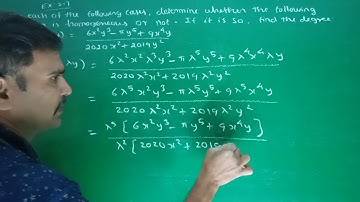 Ex 8.7
each of the following cases, determine whether the following
homogeneous or not. If it is so, find the degree
) = 6x²y³ - πy⁵ + 9x⁴y / 2020x² + 2019y²
λy) = 6λ²x²λ³y³ - πλ⁵y⁵ + 9λ⁴x⁴λy / 2020λ²x² + 2019λ²y²
= 6λ⁵x²y³ - πλ⁵y⁵ + 9λ⁵x⁴y / 2020λ²x² + 2019λ²y²
= λ⁵[6x²y³ - πy⁵ + 9x⁴y] / λ²[2020x² + 2019